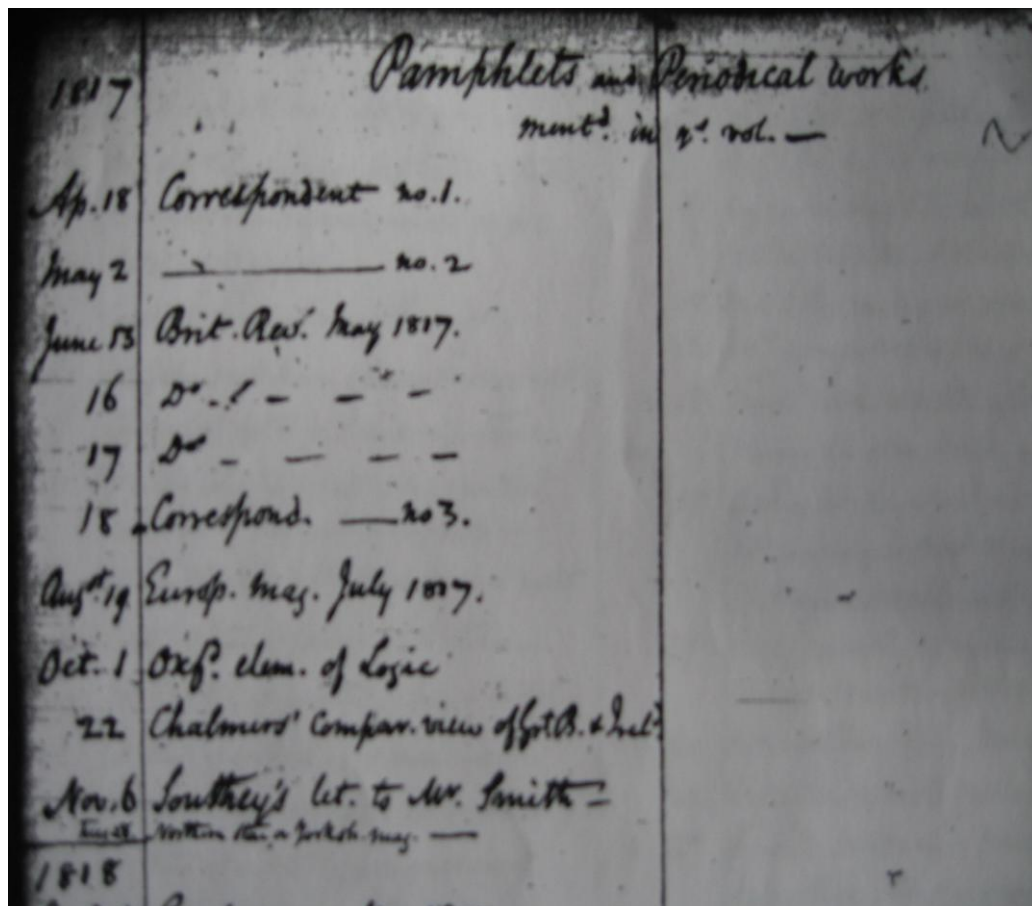 1817 Pamphlets and Periodical works
mentd. in ys. vol. —
Ap. 18 Correspondent no. 1.
May 2 ———— no. 2
June 13 Brit. Rev. May 1817.
16 Do - - - -
17 Do - - - -
18 Correspond. — no 3.
Augst. 19 Europ. Mag. July 1817.
Oct. 1 Oxfd. elem. of Logic
22 Chalmers' compar. view of Grt B. & Ireld
Nov. 6 Southey's let. to Mr. Smith —
Northern star or Yorksh. mag. —
1818